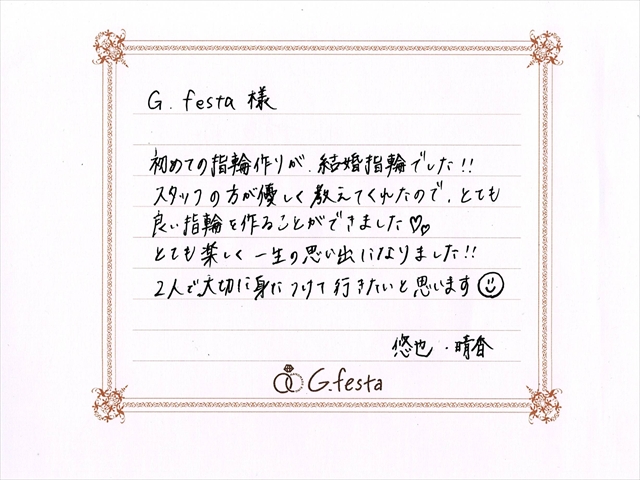 G. festa 様
初めての指輪作りが、結婚指輪でした!!
スタッフの方が優しく教えてくれたので、とても
良い指輪を作ることができました♡♡
とても楽しく一生の思い出になりました!!
2人で大切に身につけて行きたいと思います☺
悠也・晴香
G.festa